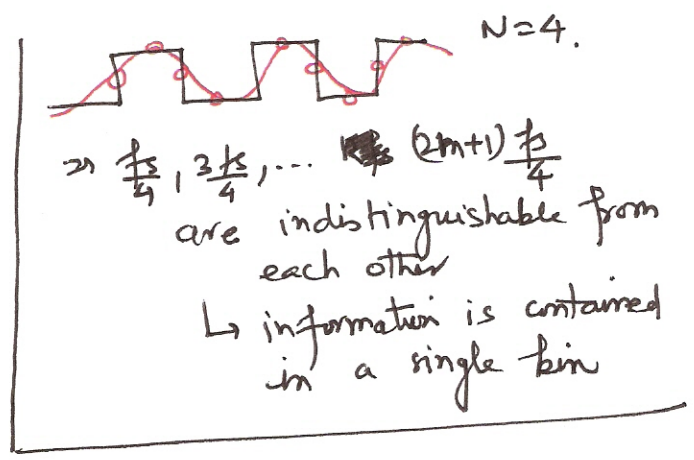 N=4.
⇒ fs/4, 3fs/4, ... (2m+1) fs/4
are indistinguishable from
each other
↳ information is contained
in a single bin